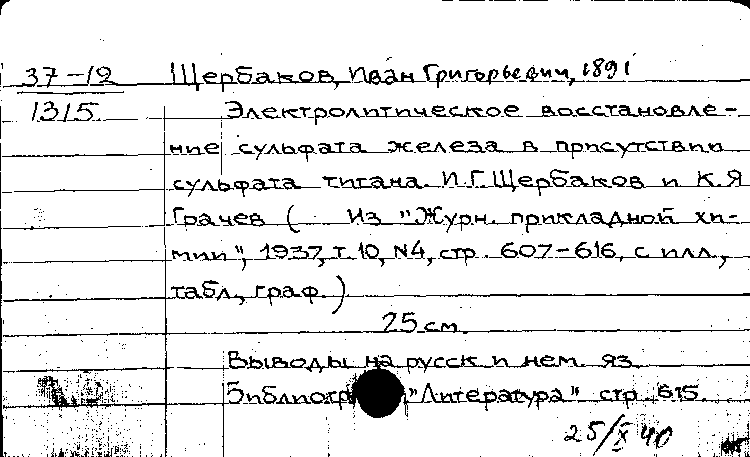 37-12 Щербаков, Иван Григорьевич, 1891
1315 Электролитическое восстановле-
ние сульфата железа в присутствии
сульфата титана. И.Г.Щербаков и К.Я
Грачев ( Из "Журн. прикладной хи-
мии", 1937, т. 10, N4, стр. 607-616, с илл.,
табл., граф.)
25 см.
Выводы на русск и нем. яз.
Библиогр "Литература" стр. 615.
25/X 40